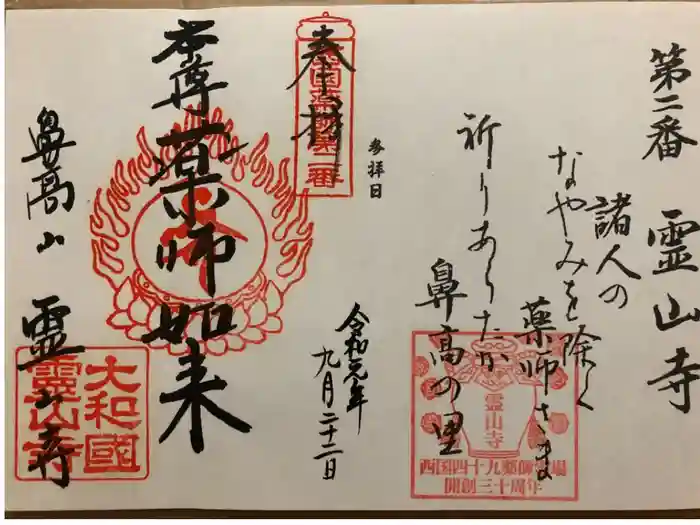 第二番 霊山寺
諸人の
なやみを除く
薬師さま
祈りあらたか
鼻高の里
霊山寺
西国四十九薬師霊場
開創三十周年
参拝日
令和元年
九月二十二日
奉拝
西国薬師第二番
本尊 薬師如来
鼻高山 霊山寺
大和國
霊山寺